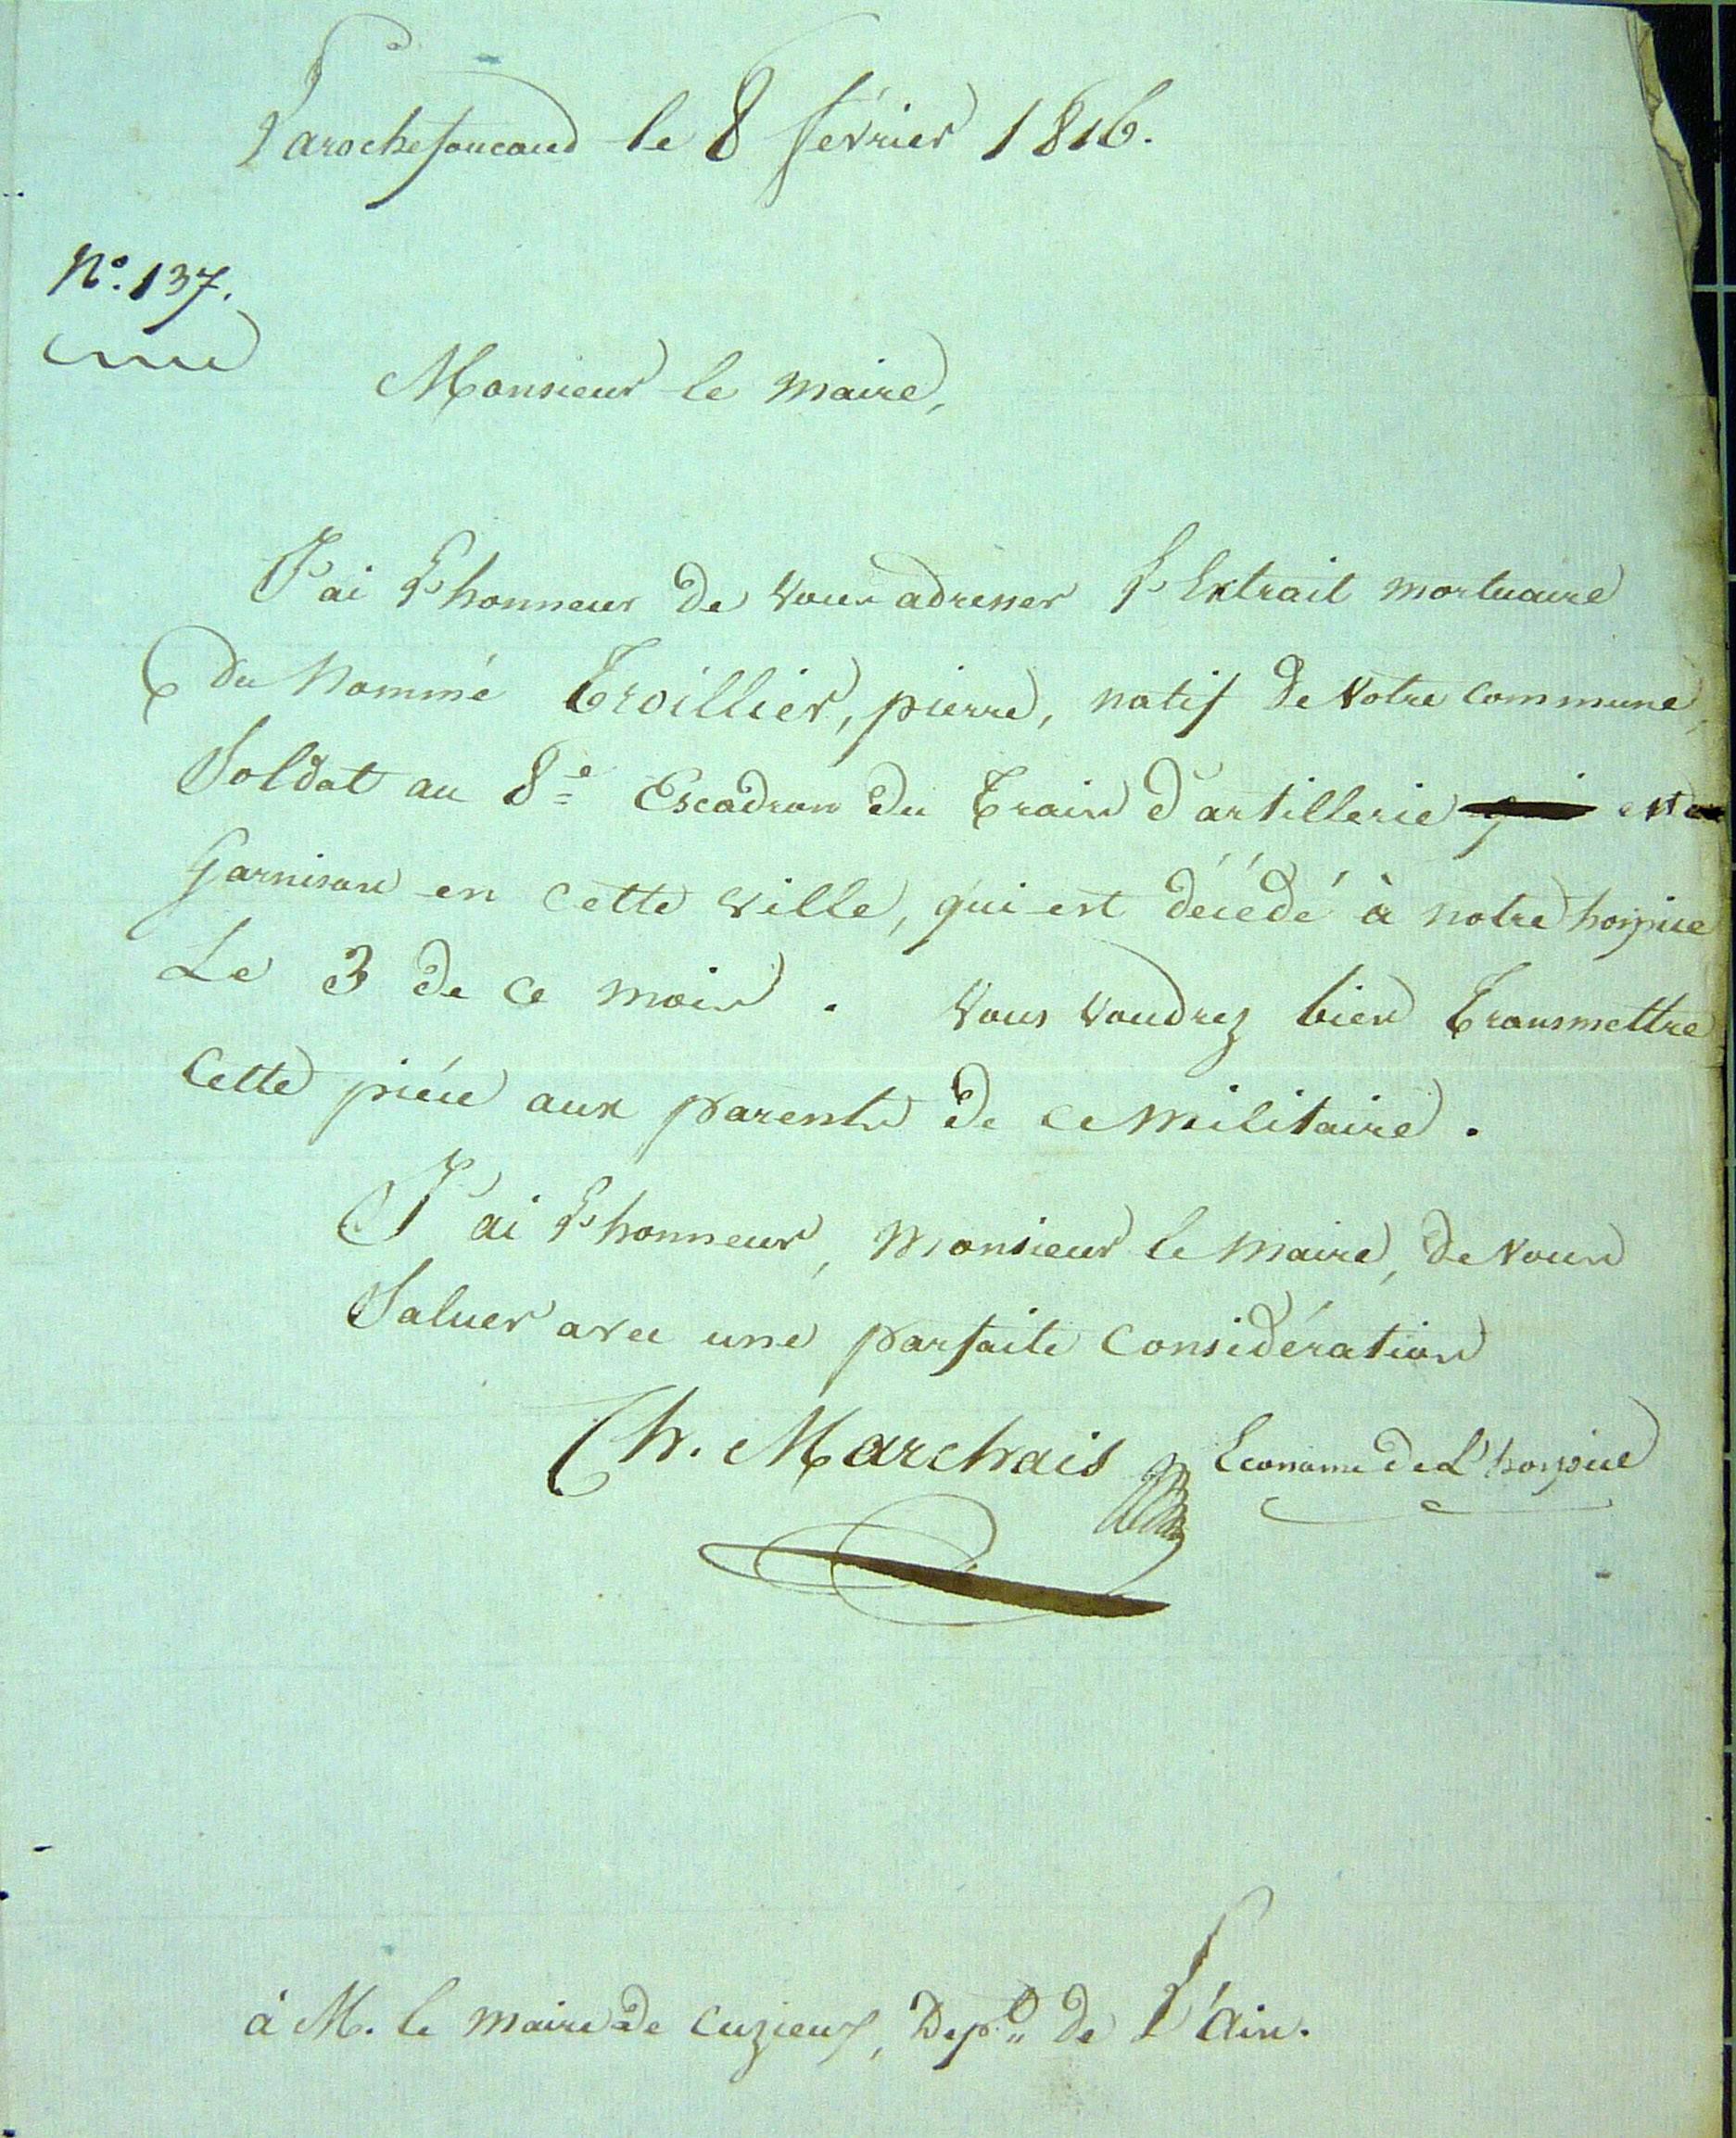 Larochefoucaud le 8 février 1816.
N°. 137.
Monsieur le Maire,
J'ai L'honneur de vous adresser L'Extrait mortuaire
du Nommé Troillier, pierre, natif de Votre Commune,
Soldat au 8e Escadron du Train d'artillerie qui est en
Garnison en cette ville, qui est décédé à notre hospice
Le 3 de ce mois. Vous voudrez bien Transmettre
Cette pièce aux parents de ce Militaire.
J'ai L'honneur, Monsieur le Maire, de Vous
Saluer avec une parfaite Considération
Ch. Marchais Econome de L'hospice
à M. le Maire de Cuzieux, Dept. de L'Ain.